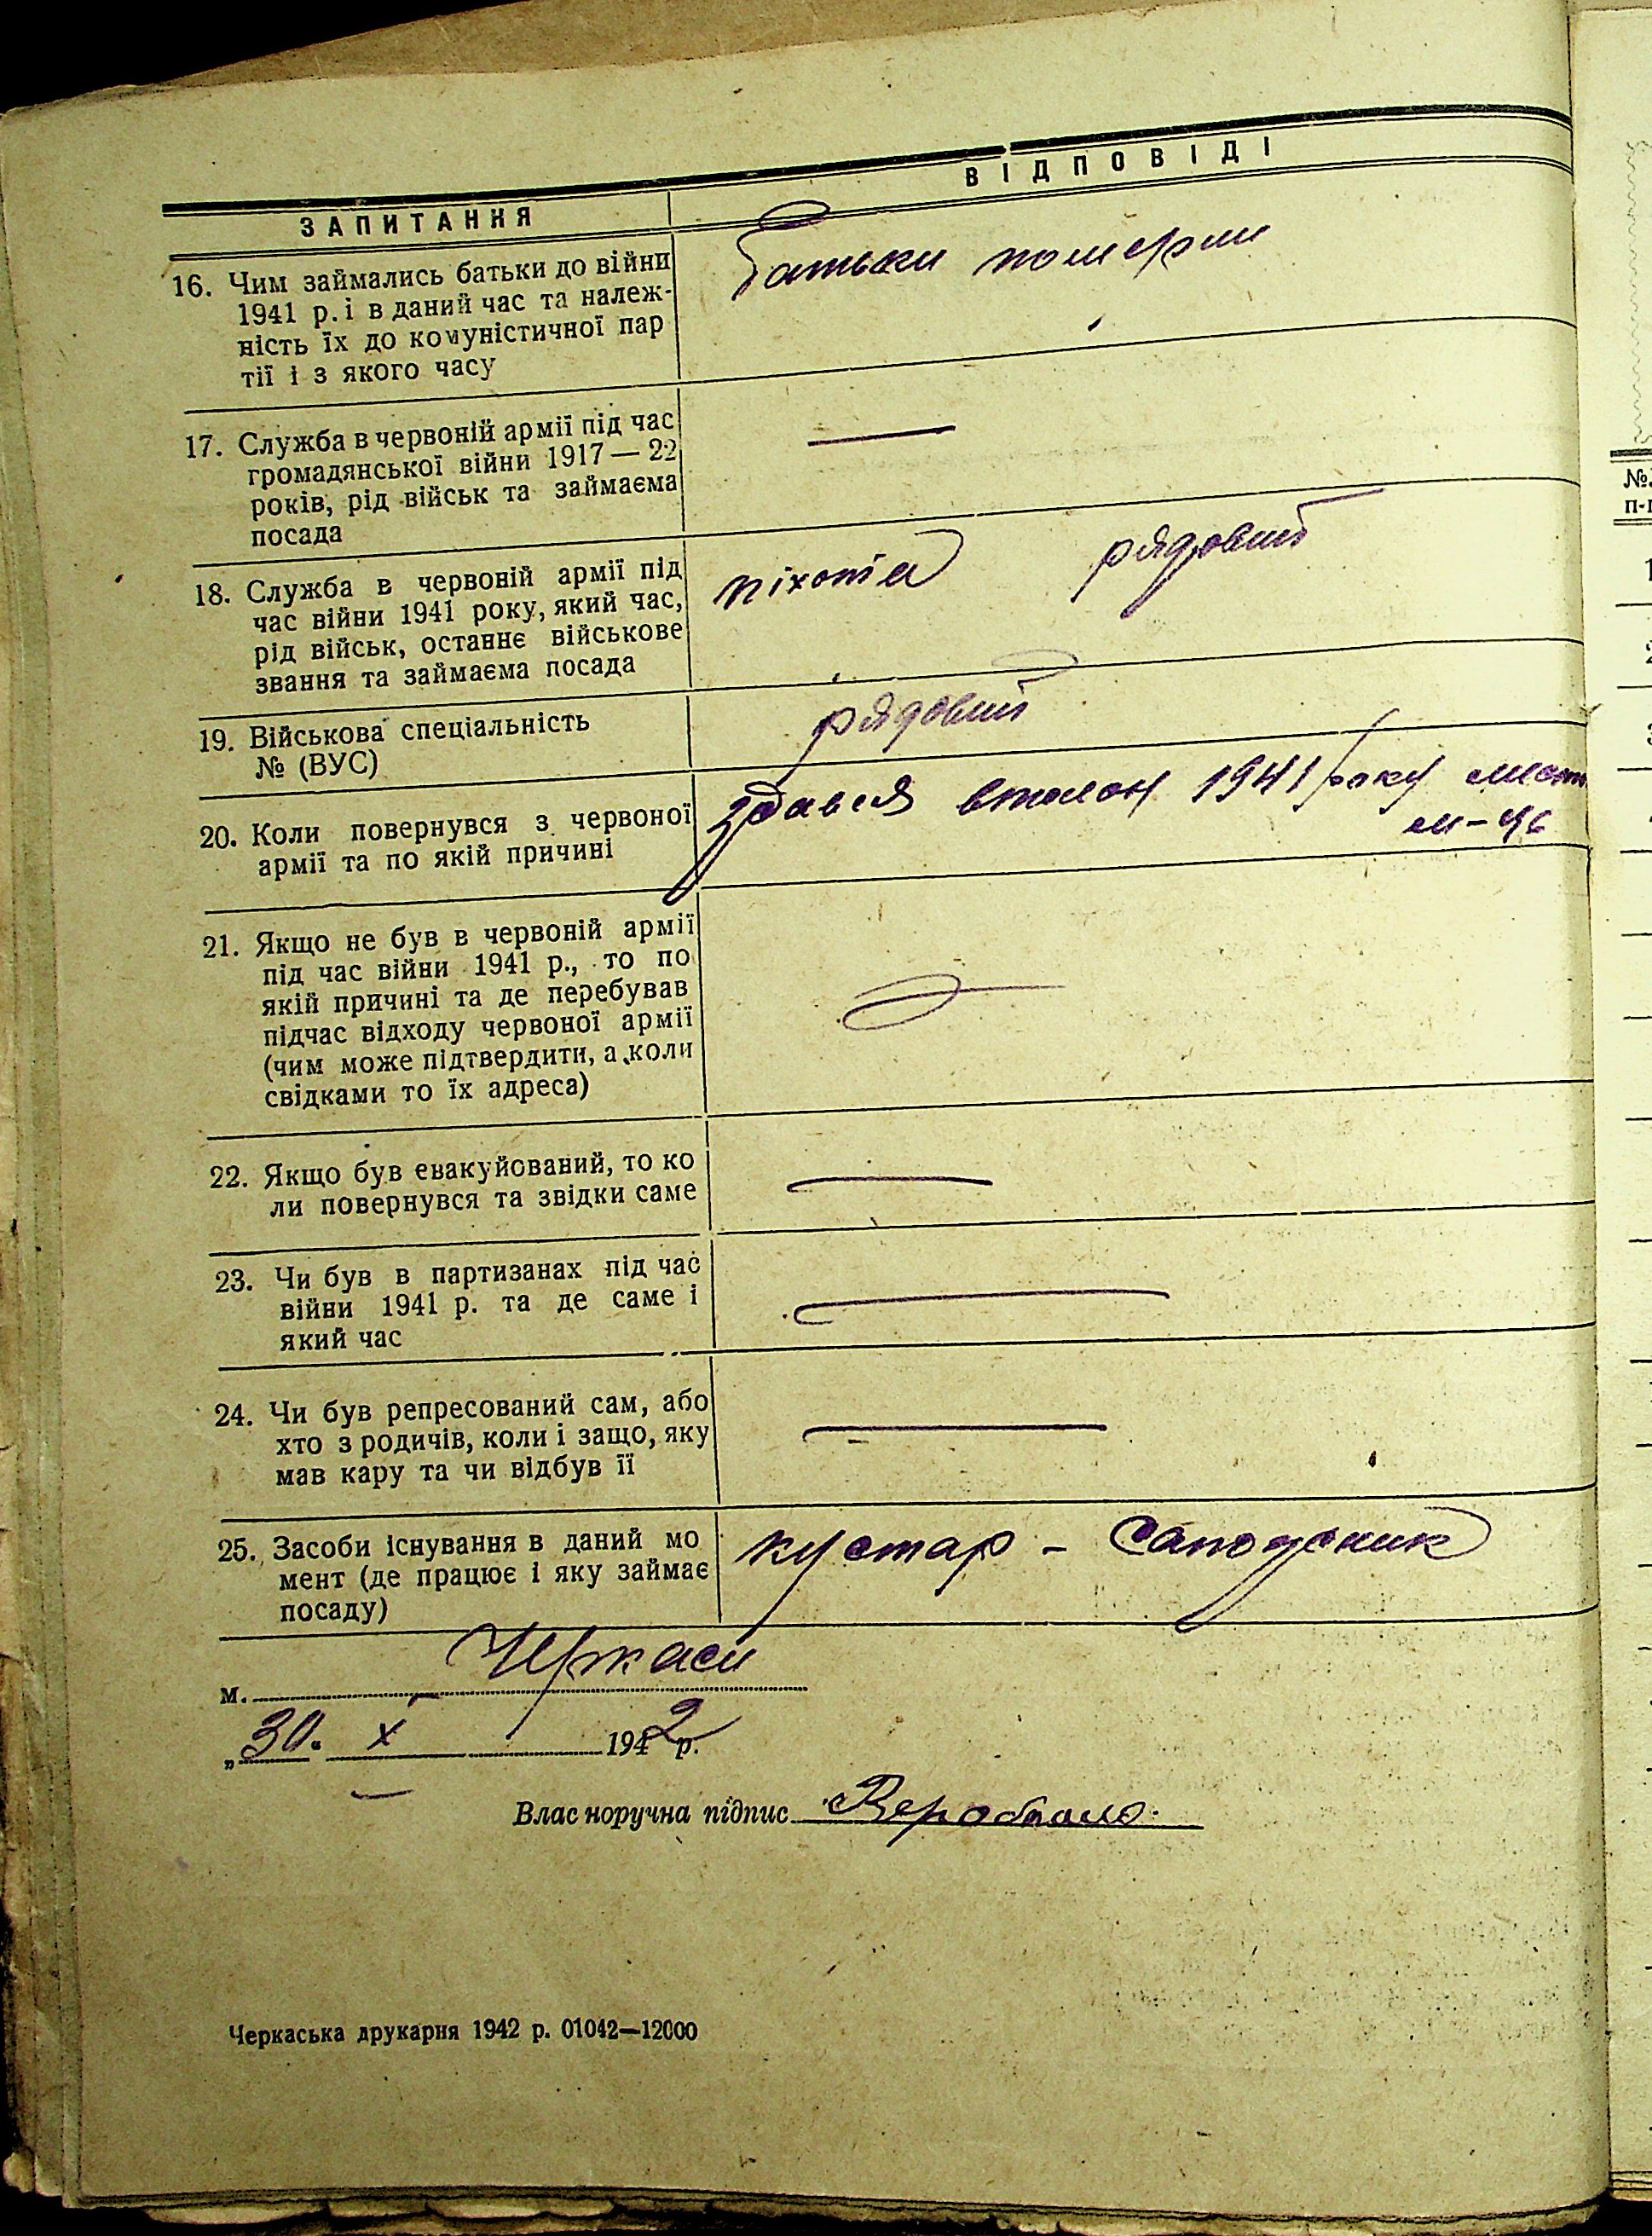 ЗАПИТАННЯ
ВІДПОВІДІ
16. Чим займались батьки до війни
1941 р. і в даний час та належ-
ність їх до комуністичної пар
тії і з якого часу
Батьки померли
17. Служба в червоній армії під час
громадянської війни 1917—22
років, рід військ та займаєма
посада
—
18. Служба в червоній армії під
час війни 1941 року, який час,
рід військ, останнє військове
звання та займаєма посада
піхота рядовий
19. Військова спеціальність
№ (ВУС)
рядовий
20. Коли повернувся з червоної
армії та по якій причині
здався в полон 1941 року
21. Якщо не був в червоній армії
під час війни 1941 р., то по
якій причині та де перебував
підчас відходу червоної армії
(чим може підтвердити, а коли
свідками то їх адреса)
—
22. Якщо був евакуйований, то ко
ли повернувся та звідки саме
—
23. Чи був в партизанах під час
війни 1941 р. та де саме і
який час
—
24. Чи був репресований сам, або
хто з родичів, коли і защо, яку
мав кару та чи відбув її
—
25. Засоби існування в даний мо
мент (де працює і яку займає
посаду)
кустар - Сапожник
м. Черкаси
„30“ X 1942 р.
Влас норучна підпис
Черкаська друкарня 1942 р. 01042—12000
№
п-п